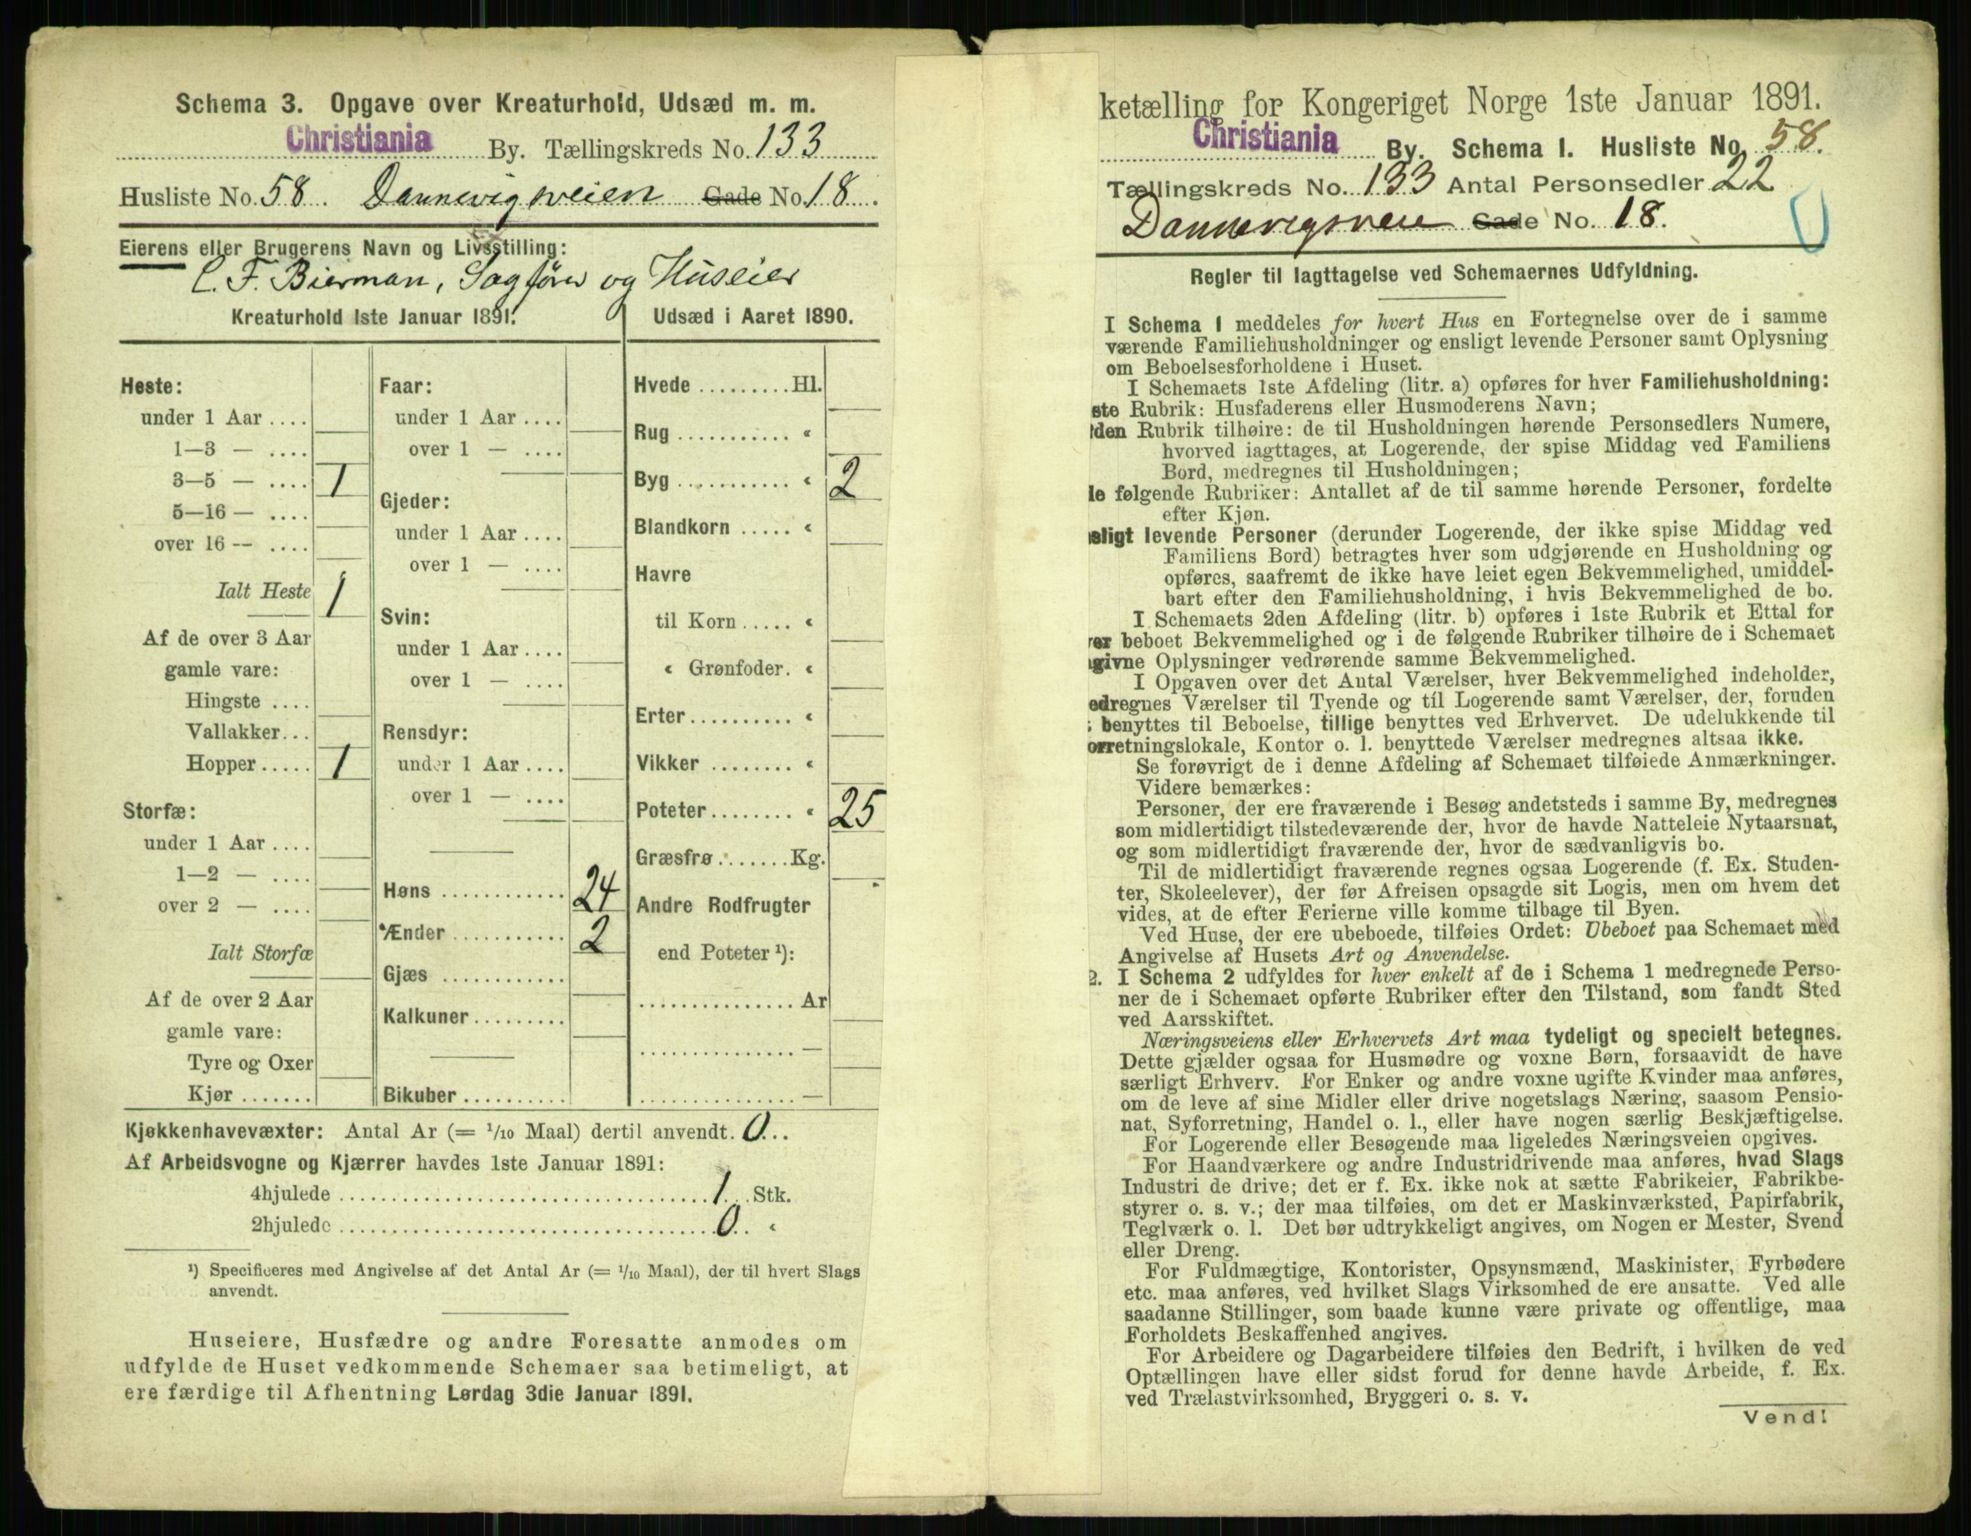 Schema 3. Opgave over Kreaturhold, Udsæd m. m.
Christiania By. Tællingskreds No. 133
Husliste No. 58. Dannevigsveien Gade No. 18.
Eierens eller Brugerens Navn og Livsstilling:
C. F. Bierman, Sagfører og Huseier
Kreaturhold 1ste Januar 1891.
Heste:
under 1 Aar ....
1—3 — ....
3—5 — .... 1
5—16 — ....
over 16 — ....
Ialt Heste 1
Af de over 3 Aar
gamle vare:
Hingste ....
Vallakker...
Hopper..... 1
Storfæ:
under 1 Aar ....
1—2 — ....
over 2 — ....
Ialt Storfæ
Af de over 2 Aar
gamle vare:
Tyre og Oxer
Kjør .......
Faar:
under 1 Aar ....
over 1 — ....
Gjeder:
under 1 Aar ....
over 1 — ....
Svin:
under 1 Aar ....
over 1 — ....
Rensdyr:
under 1 Aar ....
over 1 — ....
Høns ............ 24
Ænder ........... 2
Gjæs ............
Kalkuner .........
Bikuber ..........
Udsæd i Aaret 1890.
Hvede ......... Hl.
Rug ........... «
Byg ........... « 2
Blandkorn ..... «
Havre
til Korn ..... «
« Grønfoder. «
Erter.......... «
Vikker ........ «
Poteter........ « 25
Græsfrø ....... Kg.
Andre Rodfrugter
end Poteter ¹):
............... Ar
............... —
............... —
Kjøkkenhavevæxter: Antal Ar (= 1/10 Maal) dertil anvendt. 0...
Af Arbeidsvogne og Kjærrer havdes 1ste Januar 1891:
4hjulede .................................... 1 Stk.
2hjulede .................................... 0 «
¹) Specificeres med Angivelse af det Antal Ar (= 1/10 Maal), der til hvert Slags
anvendt.
Huseiere, Husfædre og andre Foresatte anmodes om
udfylde de Huset vedkommende Schemaer saa betimeligt, at
ere færdige til Afhentning Lørdag 3die Januar 1891.
ketælling for Kongeriget Norge 1ste Januar 1891.
Christiania By. Schema 1. Husliste No. 58.
Tællingskreds No. 133 Antal Personsedler 22
Dannevigsveie Gade No. 18.
Regler til Iagttagelse ved Schemaernes Udfyldning.
I Schema 1 meddeles for hvert Hus en Fortegnelse over de i samme
værende Familiehusholdninger og ensligt levende Personer samt Oplysning
om Beboelsesforholdene i Huset.
I Schemaets 1ste Afdeling (litr. a) opføres for hver Familiehusholdning:
ste Rubrik: Husfaderens eller Husmoderens Navn;
den Rubrik tilhøire: de til Husholdningen hørende Personsedlers Numere,
hvorved iagttages, at Logerende, der spise Middag ved Familiens
Bord, medregnes til Husholdningen;
le følgende Rubriker: Antallet af de til samme hørende Personer, fordelte
efter Kjøn.
sligt levende Personer (derunder Logerende, der ikke spise Middag ved
Familiens Bord) betragtes hver som udgjørende en Husholdning og
opføres, saafremt de ikke have leiet egen Bekvemmelighed, umiddel-
bart efter den Familiehusholdning, i hvis Bekvemmelighed de bo.
I Schemaets 2den Afdeling (litr. b) opføres i 1ste Rubrik et Ettal for
er beboet Bekvemmelighed og i de følgende Rubriker tilhøire de i Schemaet
givne Oplysninger vedrørende samme Bekvemmelighed.
I Opgaven over det Antal Værelser, hver Bekvemmelighed indeholder,
edregnes Værelser til Tyende og til Logerende samt Værelser, der, foruden
benyttes til Beboelse, tillige benyttes ved Erhvervet. De udelukkende til
orretningslokale, Kontor o. l. benyttede Værelser medregnes altsaa ikke.
Se forøvrigt de i denne Afdeling af Schemaet tilføiede Anmærkninger.
Videre bemærkes:
Personer, der ere fraværende i Besøg andetsteds i samme By, medregnes
som midlertidigt tilstedeværende der, hvor de havde Natteleie Nytaarsnat,
og som midlertidigt fraværende der, hvor de sædvanligvis bo.
Til de midlertidigt fraværende regnes ogsaa Logerende (f. Ex. Studen-
ter, Skoleelever), der før Afreisen opsagde sit Logis, men om hvem det
vides, at de efter Ferierne ville komme tilbage til Byen.
Ved Huse, der ere ubeboede, tilføies Ordet: Ubeboet paa Schemaet med
Angivelse af Husets Art og Anvendelse.
2. I Schema 2 udfyldes for hver enkelt af de i Schema 1 medregnede Perso-
ner de i Schemaet opførte Rubriker efter den Tilstand, som fandt Sted
ved Aarsskiftet.
Næringsveiens eller Erhvervets Art maa tydeligt og specielt betegnes.
Dette gjælder ogsaa for Husmødre og voxne Børn, forsaavidt de have
særligt Erhverv. For Enker og andre voxne ugifte Kvinder maa anføres,
om de leve af sine Midler eller drive nogetslags Næring, saasom Pensio-
nat, Syforretning, Handel o. l., eller have nogen særlig Beskjæftigelse.
For Logerende eller Besøgende maa ligeledes Næringsveien opgives.
For Haandværkere og andre Industridrivende maa anføres, hvad Slags
Industri de drive; det er f. Ex. ikke nok at sætte Fabrikeier, Fabrikbe-
styrer o. s. v.; der maa tilføies, om det er Maskinværksted, Papirfabrik,
Teglværk o. l. Det bør udtrykkeligt angives, om Nogen er Mester, Svend
eller Dreng.
For Fuldmægtige, Kontorister, Opsynsmænd, Maskinister, Fyrbødere
etc. maa anføres, ved hvilket Slags Virksomhed de ere ansatte. Ved alle
saadanne Stillinger, som baade kunne være private og offentlige, maa
Forholdets Beskaffenhed angives.
For Arbeidere og Dagarbeidere tilføies den Bedrift, i hvilken de ved
Optællingen have eller sidst forud for denne havde Arbeide, f. Ex.
ved Trælastvirksomhed, Bryggeri o. s. v.
Vend!